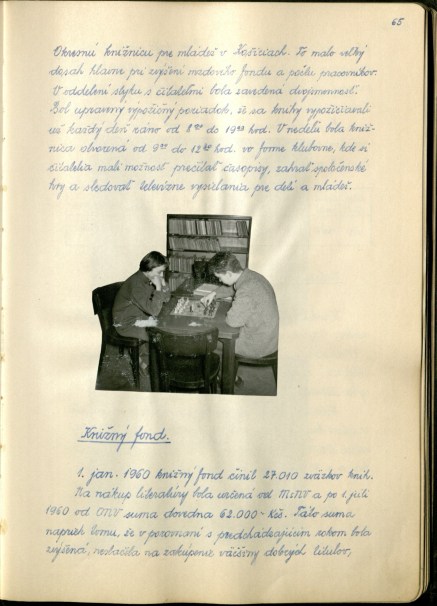 65
Okresnú knižnicu pre mládež v Košiciach. To malo veľký
dosah hlavne pri zvýšení mzdového fondu a počtu pracovníkov.
V oddelení styku s čitateľmi bola zavedená dvojsmennosť.
Bol upravený výpožičný poriadok, že sa knihy vypožičiavali
už každý deň ráno od 8 do 19 hod. V nedeľu bola kniž-
nica otvorená od 9 do 12 hod. vo forme klubovne, kde si
čitatelia mali možnosť prečítať časopisy, zahrať spoločenské
hry a sledovať televízne vysielania pre deti a mládež.
Knižný fond.
1. jan. 1960 knižný fond činil 27.010 zväzkov kníh.
Na nákup literatúry bola určená od MsNV a po 1. júli
1960 od ONV suma dovedna 62.000.- Kčs. Táto suma
napriek tomu, že v porovnaní s predchádzajúcim rokom bola
zvýšená, nestačila na zakúpenie väčšiny dobrých titulov,